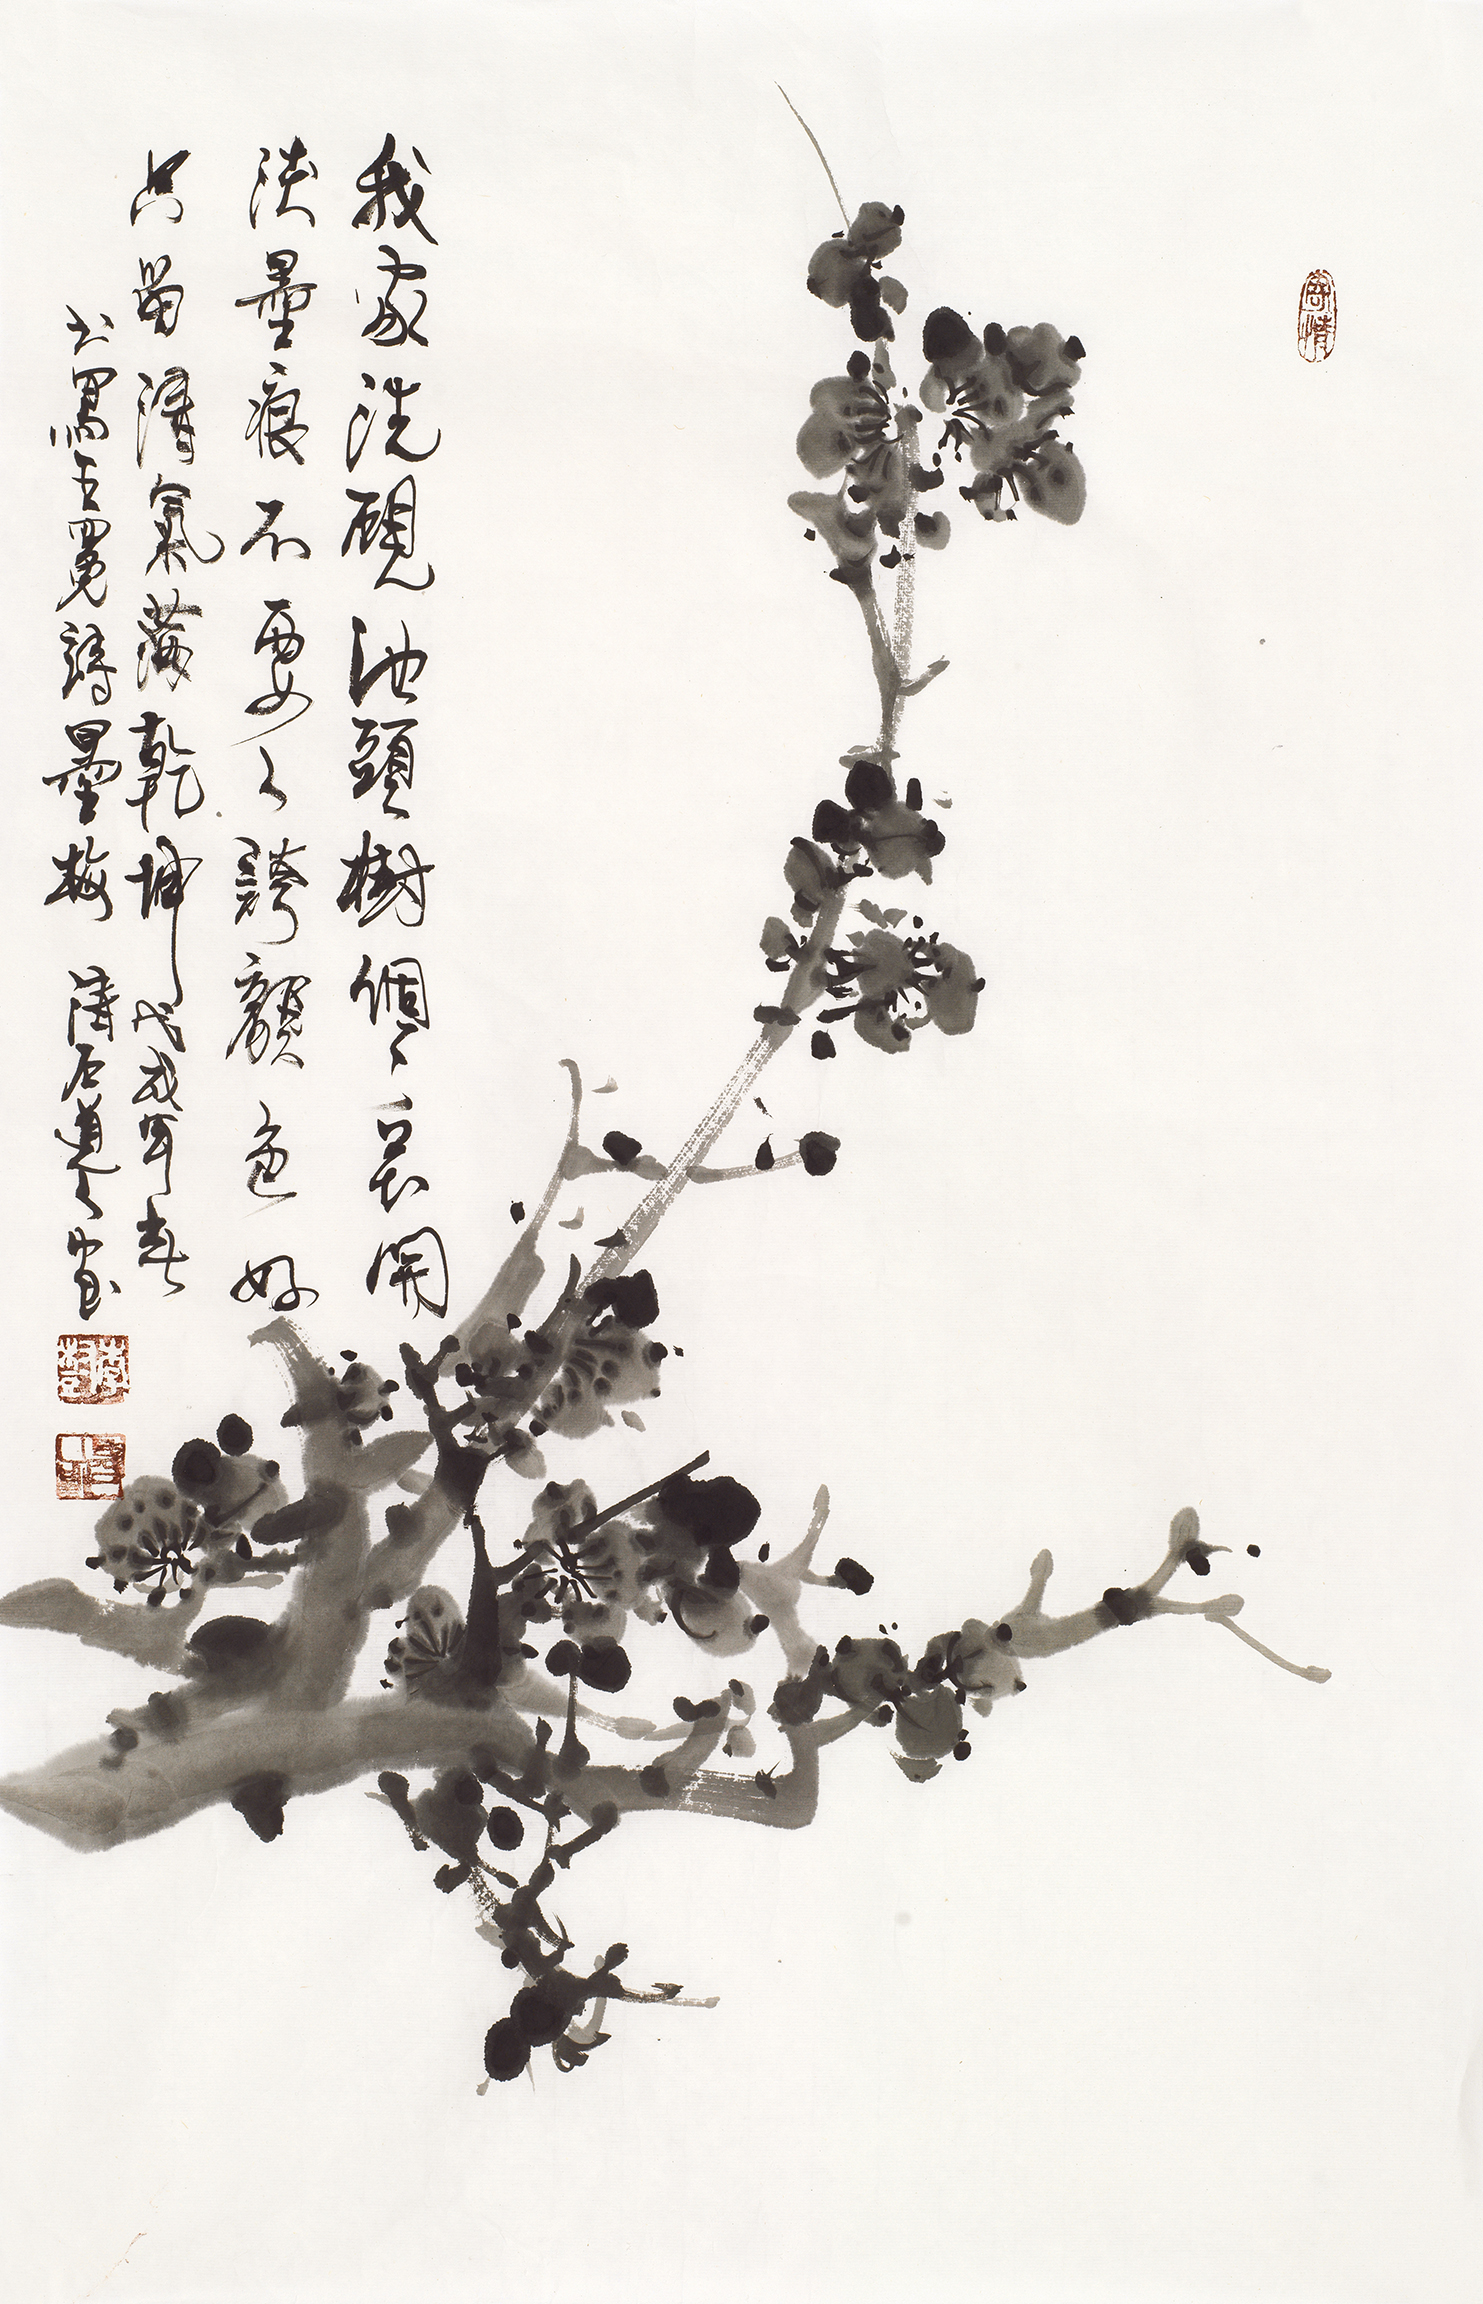 寄情
我家洗硯池頭樹個々開
淡墨痕不要人誇顏色好
只留清氣滿乾坤戊戌年春
书寫王冕詩墨梅 清石道人畫